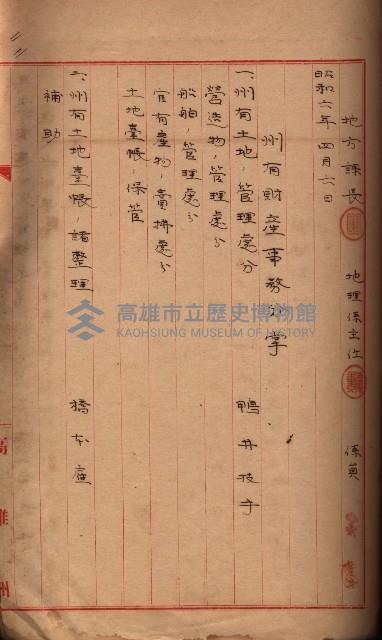 地方課長 地理係主任 係員
昭和六年四月六日
州有財産事務分掌
一、州有土地、管理處分 鴨井技手
營造物、管理處分
船舶、管理處分
官有産物、賣拂處分
土地臺帳、保管
一、州有土地臺帳、諸整理 橋本雇
補助
高雄州
高雄市立歷史博物館
KAOHSIUNG MUSEUM OF HISTORY